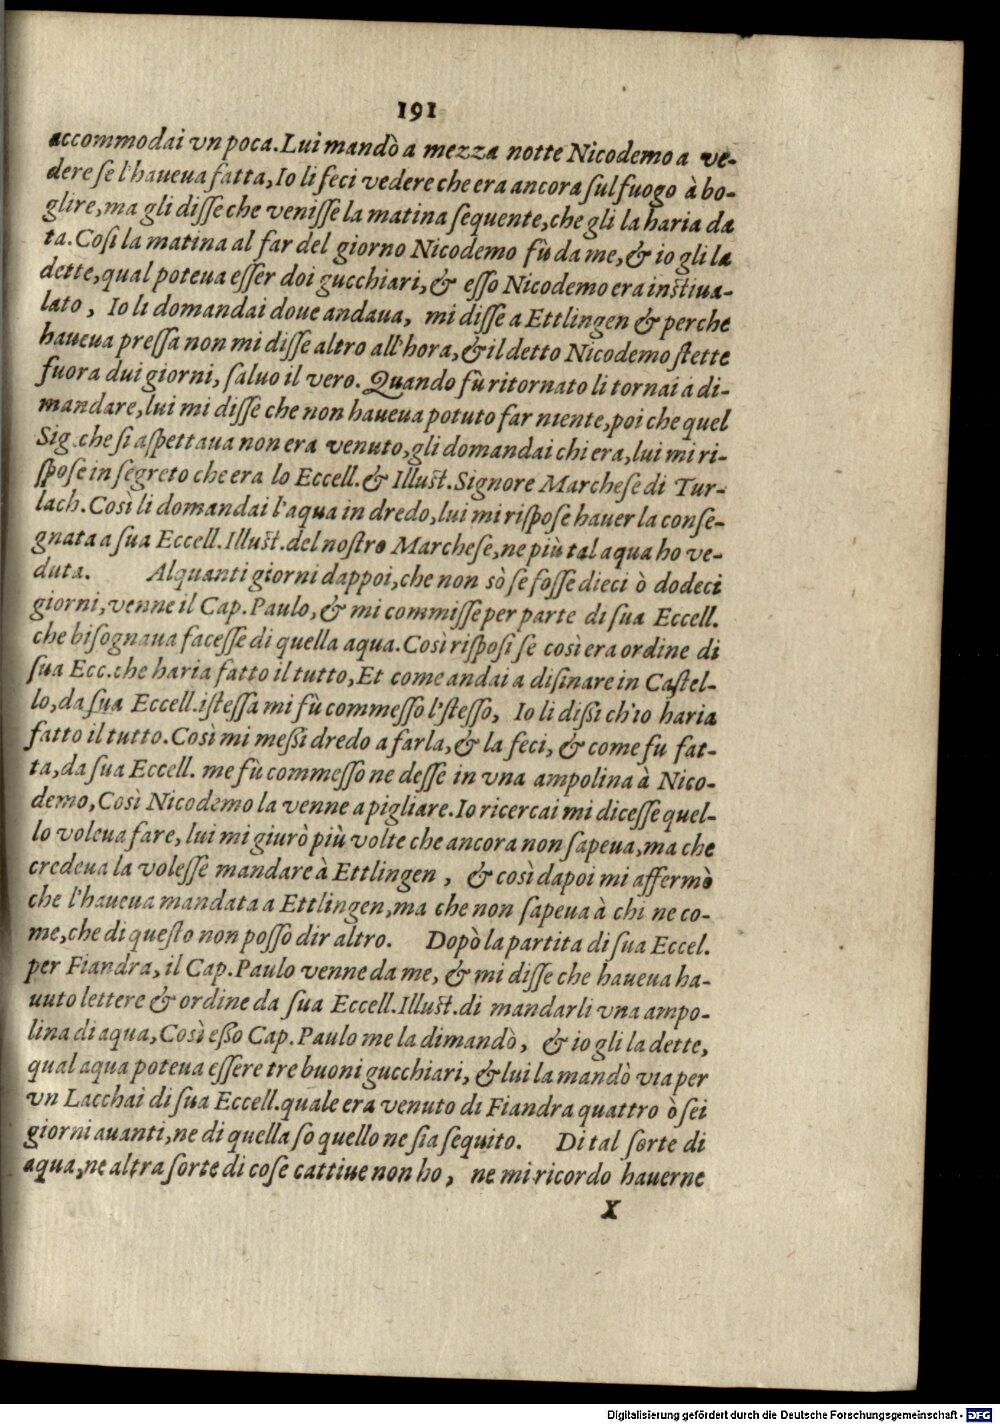 191
accommodai vn poca. Lui mandò a mezza notte Nicodemo a ve-
dere ſe l'haueua fatta, Io li feci vedere che era ancora ſul fuogo à bo-
glire, ma gli diſſe che veniſſe la matina ſequente, che gli la haria da
ta. Coſi la matina al far del giorno Nicodemo fù da me, & io gli la
dette, qual poteua eſſer doi gucchiari, & eſſo Nicodemo era inſtiua-
lato, Io li domandai doue andaua, mi diſſe a Ettlingen & perche
haueua preſſa non mi diſſe altro all'hora, & il detto Nicodemo ſtette
fuora dui giorni, ſaluo il vero. Quando fù ritornato li tornai a di-
mandare, lui mi diſſe che non haueua potuto far niente, poi che quel
Sig. che ſi aſpettaua non era venuto, gli domandai chi era, lui mi ri-
ſpoſe in ſegreto che era lo Eccell. & Illuſt. Signore Marcheſe di Tur-
lach. Così li domandai l'aqua in dredo, lui mi riſpoſe hauer la conſe-
gnata a ſua Eccell. Illuſt. del noſtro Marcheſe, ne più tal aqua ho ve-
duta. Alquanti giorni dappoi, che non sò ſe foſſe dieci ò dodeci
giorni, venne il Cap. Paulo, & mi commiſſe per parte di ſua Eccell.
che biſognaua faceſſe di quella aqua. Così riſpoſi ſe così era ordine di
ſua Ecc. che haria fatto il tutto, Et come andai a diſinare in Caſtel-
lo, da ſua Eccell. iſteſſa mi fù commeſſo l'ſteſſo, Io li dißi ch'io haria
fatto il tutto. Così mi meßi dredo a farla, & la feci, & come fu fat-
ta, da ſua Eccell. me fù commeſſo ne deſſe in vna ampolina à Nico-
demo, Così Nicodemo la venne a pigliare. Io ricercai mi diceſſe quel-
lo voleua fare, lui mi giurò più volte che ancora non ſapeua, ma che
credeua la voleſſe mandare à Ettlingen, & così dapoi mi affermò
che l'haueua mandata a Ettlingen, ma che non ſapeua à chi ne co-
me, che di queſto non poſſo dir altro. Dopò la partita di ſua Eccel.
per Fiandra, il Cap. Paulo venne da me, & mi diſſe che haueua ha-
uuto lettere & ordine da ſua Eccell. Illuſt. di mandarli vna ampo-
lina di aqua, Così eßo Cap. Paulo me la dimandò, & io gli la dette,
qual aqua poteua eſſere tre buoni gucchiari, & lui la mandò via per
vn Lacchai di ſua Eccell. quale era venuto di Fiandra quattro ò ſei
giorni auanti, ne di quella ſo quello ne ſia ſequito. Di tal ſorte di
aqua, ne altra ſorte di coſe cattiue non ho, ne mi ricordo hauerne
X
Digitalisierung gefördert durch die Deutsche Forschungsgemeinschaft - DFG